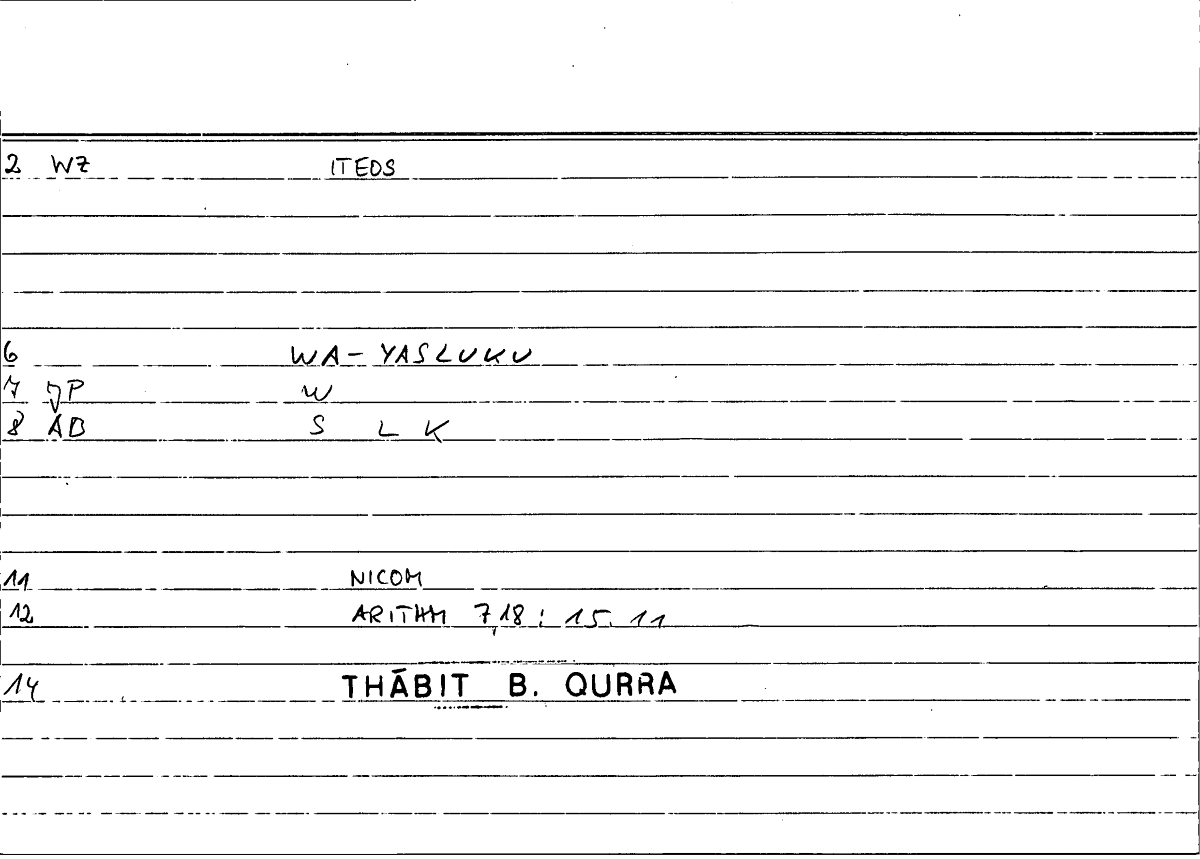 2 WZ ITEOS
6 WA- YASLUKU
7 JP W
8 AB S L K
11 NICOM
12 ARITHM 7,18 : 15. 11
14 THĀBIT B. QURRA